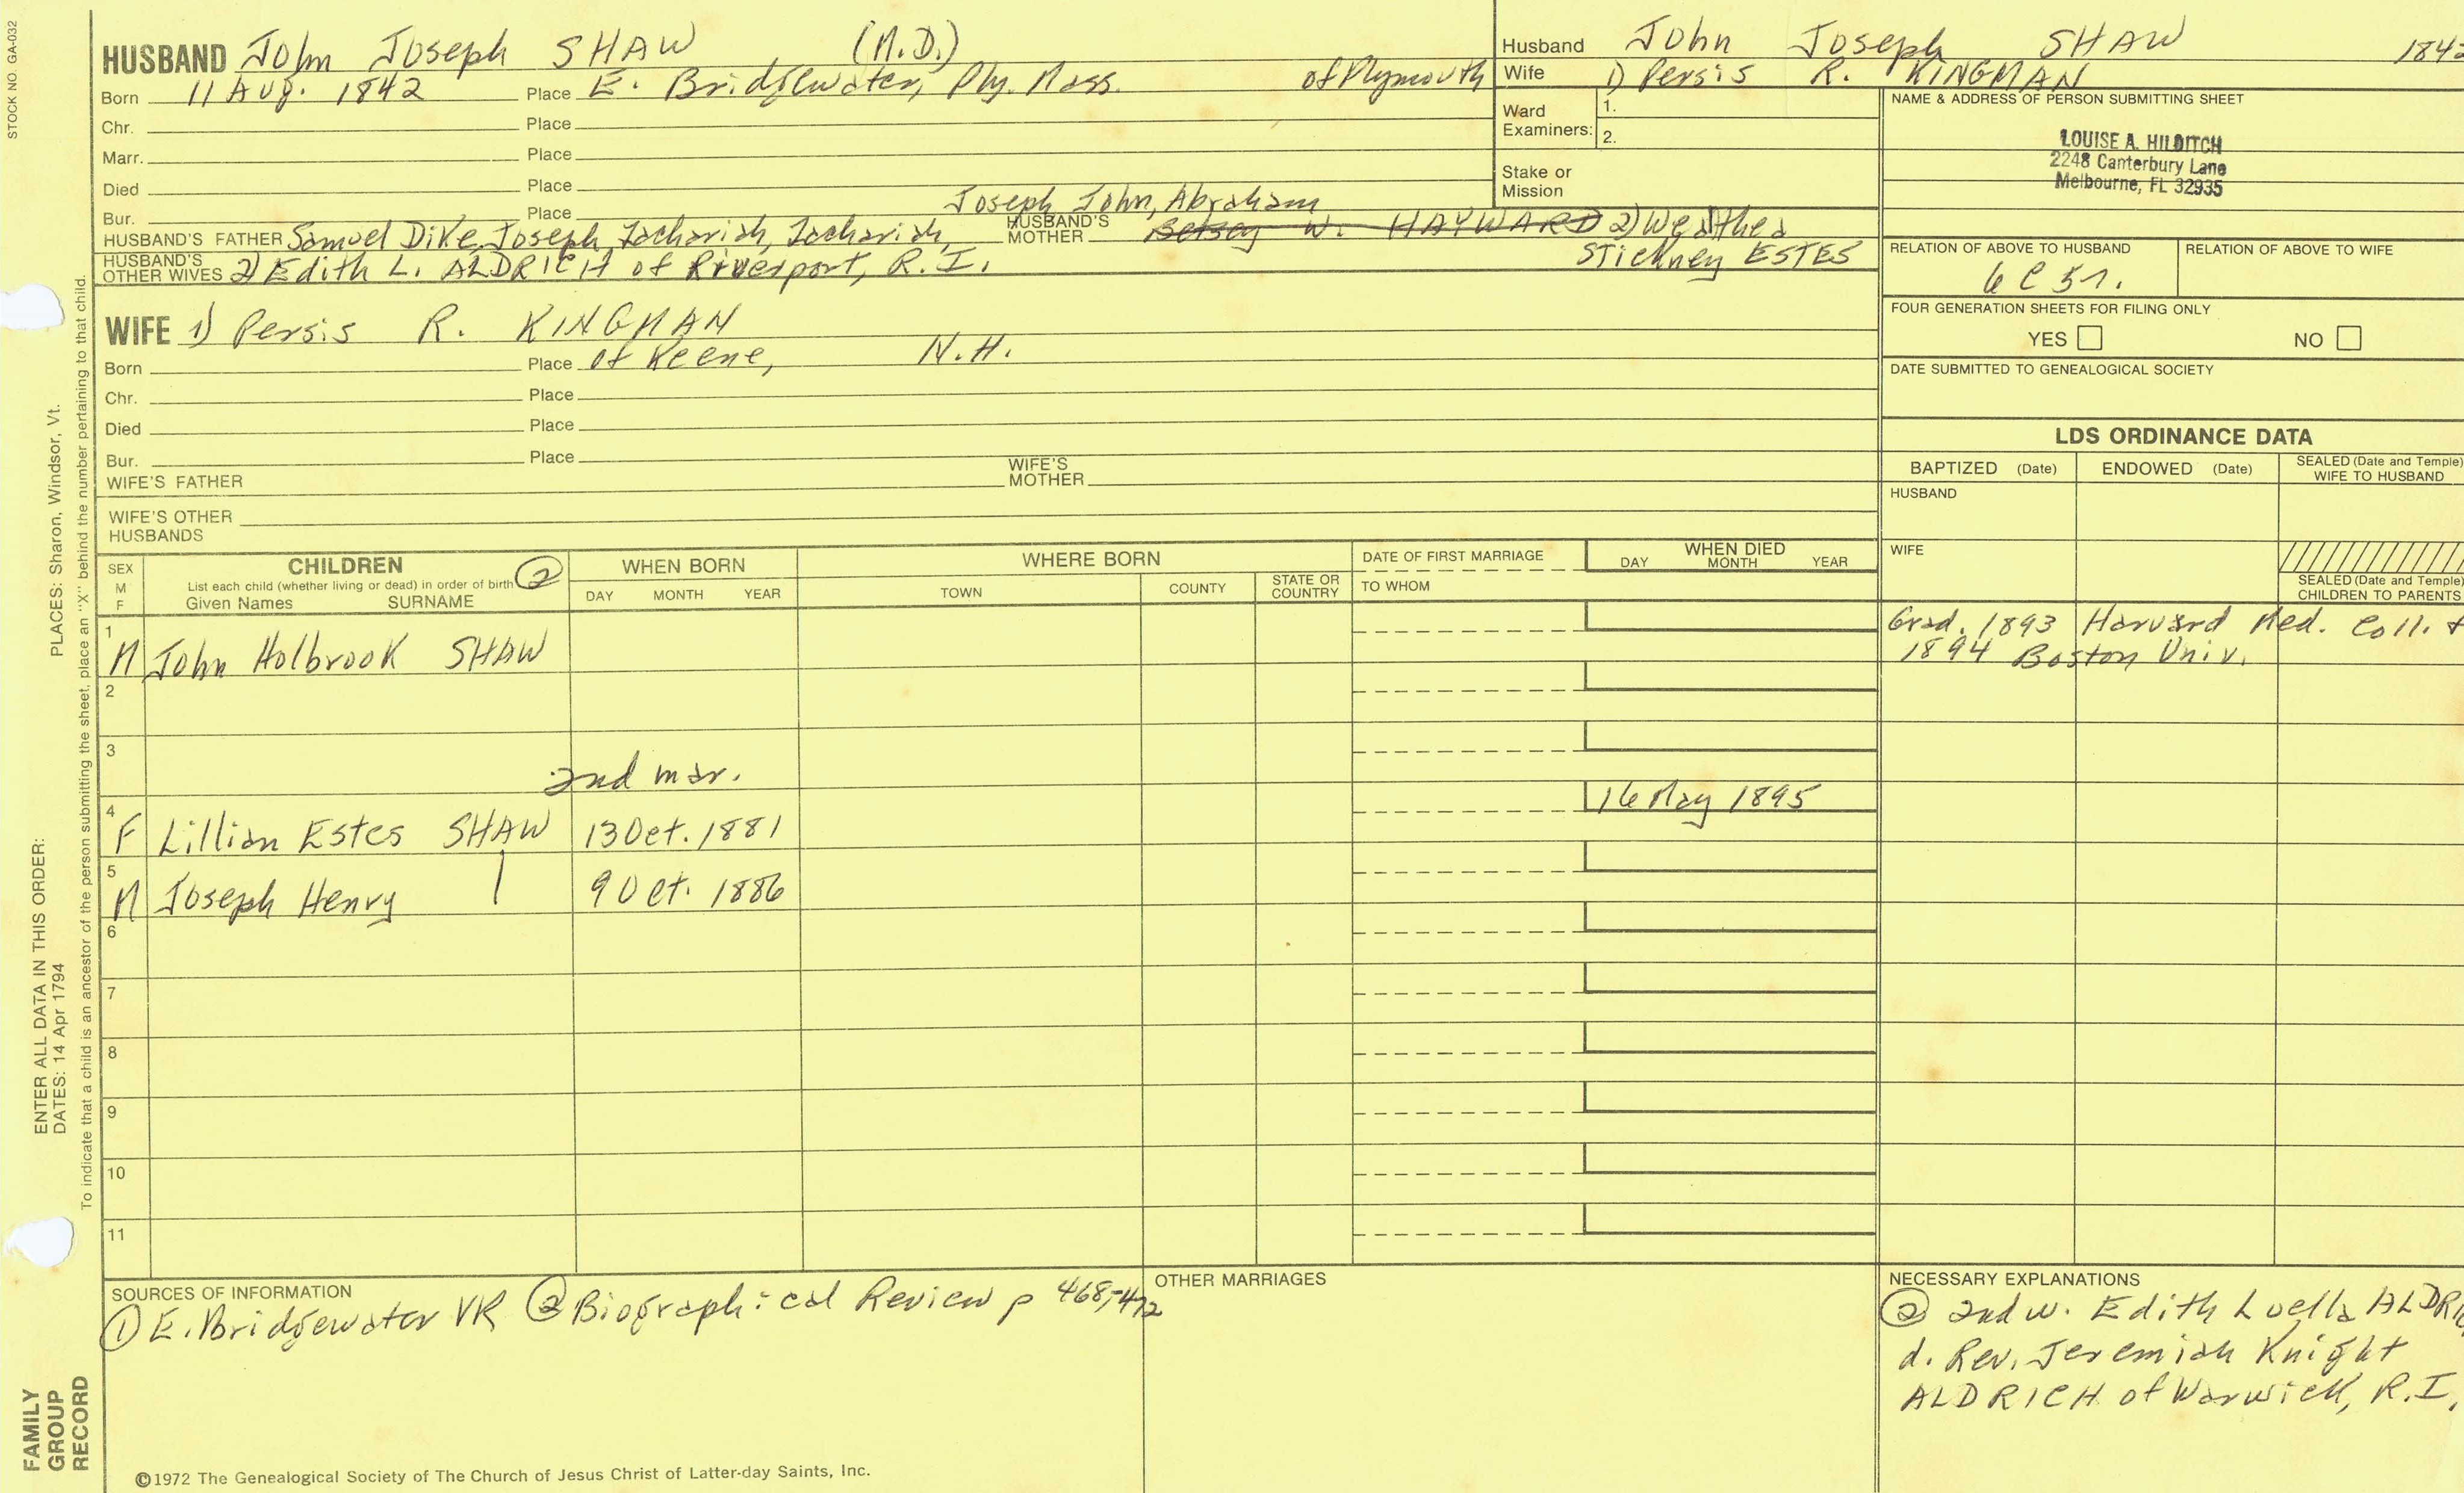 STOCK NO. GA-032
HUSBAND John Joseph SHAW (M.D.)
Born 11 Aug. 1842 Place E. Bridgewater, Ply. Mass. of Plymouth
Chr. Place
Marr. Place
Died Place
Bur. Place
Joseph, John, Abraham
HUSBAND'S FATHER Samuel Dike, Joseph, Zachariah, Zachariah, HUSBAND'S MOTHER Betsey W. HAYWARD 2) Wealthea
Stickney ESTES
HUSBAND'S OTHER WIVES 2) Edith L. ALDRICH of Riverport, R.I.
WIFE 1) Persis R. KINGMAN
Born Place of Keene, N.H.
Chr. Place
Died Place
Bur. Place
WIFE'S FATHER WIFE'S MOTHER
WIFE'S OTHER HUSBANDS
Husband John Joseph SHAW 1842
Wife 1) Persis R. KINGMAN
Ward Examiners: 1.
2.
Stake or Mission
NAME & ADDRESS OF PERSON SUBMITTING SHEET
LOUISE A. HILDITCH
2248 Canterbury Lane
Melbourne, FL 32935
RELATION OF ABOVE TO HUSBAND RELATION OF ABOVE TO WIFE
6C 5r.
FOUR GENERATION SHEETS FOR FILING ONLY
YES NO
DATE SUBMITTED TO GENEALOGICAL SOCIETY
LDS ORDINANCE DATA
BAPTIZED (Date) ENDOWED (Date) SEALED (Date and Temple) WIFE TO HUSBAND
HUSBAND
WIFE
SEALED (Date and Temple) CHILDREN TO PARENTS
SEX M F
CHILDREN ②
List each child (whether living or dead) in order of birth
Given Names SURNAME
WHEN BORN
DAY MONTH YEAR
WHERE BORN
TOWN COUNTY STATE OR COUNTRY
DATE OF FIRST MARRIAGE
TO WHOM
WHEN DIED
DAY MONTH YEAR
1 M John Holbrook SHAW Grad. 1893 Harvard Med. Coll. +
1894 Boston Univ.
2
3
2nd mar.
4 F Lillian Estes SHAW 13 Oct. 1881 16 May 1895
5 M Joseph Henry | 9 Oct. 1886
6
7
8
9
10
11
SOURCES OF INFORMATION
① E. Bridgewater VR ② Biographical Review p 468,-472
OTHER MARRIAGES
NECESSARY EXPLANATIONS
② 2nd w. Edith Luella ALDRIC
d. Rev. Jeremiah Knight
ALDRICH of Warwick, R.I.
©1972 The Genealogical Society of The Church of Jesus Christ of Latter-day Saints, Inc.
FAMILY
GROUP
RECORD
ENTER ALL DATA IN THIS ORDER:
DATES: 14 Apr 1794 PLACES: Sharon, Windsor, Vt.
To indicate that a child is an ancestor of the person submitting the sheet, place an "X" behind the number pertaining to that child.